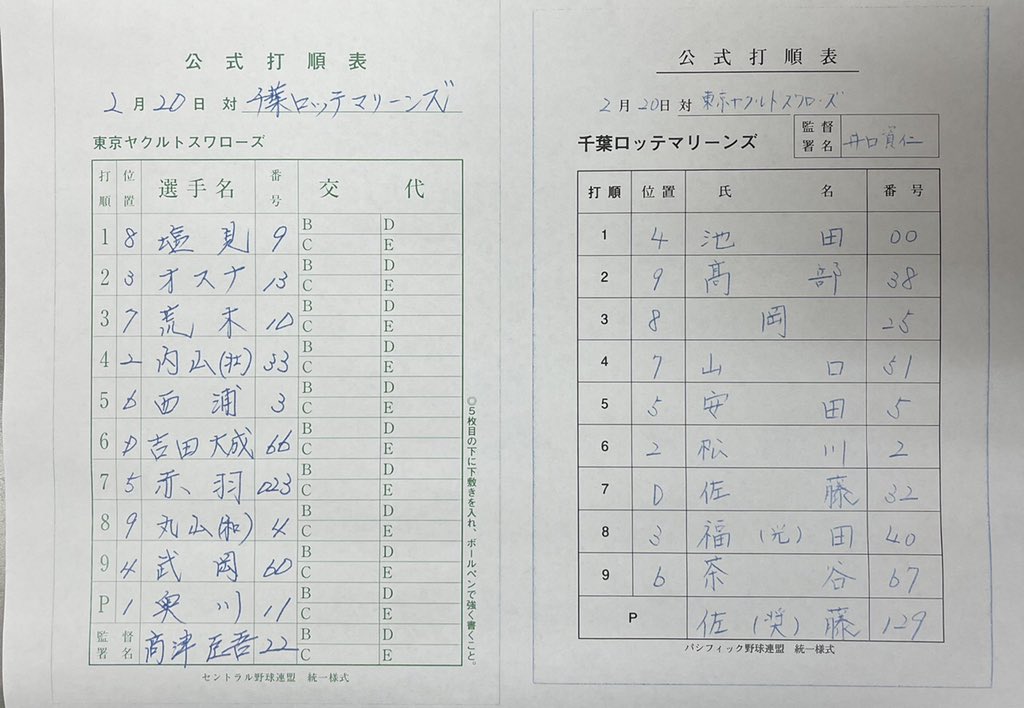 公式打順表
2月20日 対 千葉ロッテマリーンズ
東京ヤクルトスワローズ
打順 位置 選手名 番号 交代
1 8 塩見 9 B D C E
2 3 オスナ 13 B D C E
3 7 荒木 10 B D C E
4 2 内山(壮) 33 B D C E
5 6 西浦 3 B D C E
6 D 吉田大成 66 B D C E
7 5 赤羽 023 B D C E
8 9 丸山(和) 4 B D C E
9 4 武岡 60 B D C E
P 1 奥川 11 B D C E
監督署名 高津臣吾 22 B D C E
セントラル野球連盟 統一様式
◎5枚目の下に下敷きを入れ、ボールペンで強く書くこと。
公式打順表
2月20日 対 東京ヤクルトスワローズ
千葉ロッテマリーンズ 監督署名 井口資仁
打順 位置 氏名 番号
1 4 池田 00
2 9 髙部 38
3 8 岡 25
4 7 山口 51
5 5 安田 5
6 2 松川 2
7 D 佐藤 32
8 3 福(光)田 40
9 6 茶谷 67
P 佐(奨)藤 129
パシフィック野球連盟 統一様式